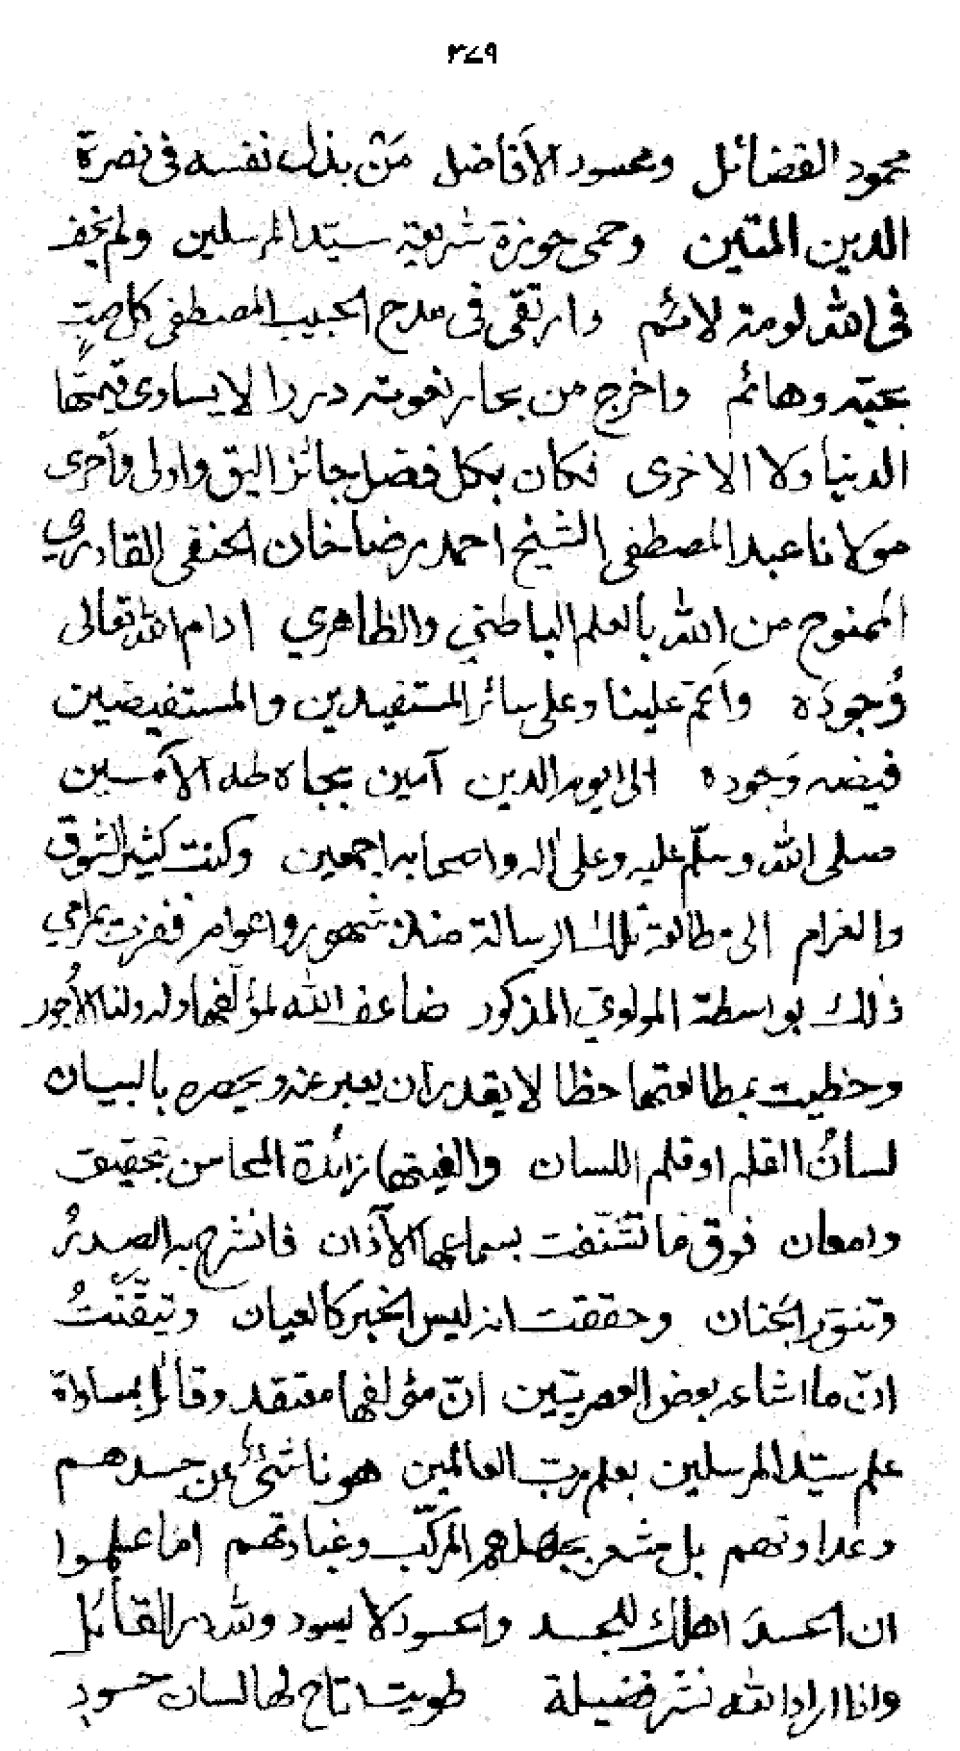 ٣٧٩
محمود الفضائل ومحسود الأفاضل مَنْ بذل نفسه فى نصرة
الدين المتين وحمى حوزة شريعة سيّد المرسلين ولم يخف
فى الله لومة لائم وارتقى فى مدح الحبيب المصطفى كل صبٍّ
بحبّه وهائم واخرج من بحار نعوته دررا لا يساوى قيمتها
الدنيا ولا الاخرى فكان بكل فضل جائز اليق واولى وأحرى
مولانا عبد المصطفى الشيخ احمد رضا خان الحنفى القادرى
الممنوح من الله بالعلم الباطني والظاهري ادام الله تعالى
وُجودَه واَعَمّ علينا وعلى سائر المستفيدين والمستفيضين
فيضه وَجوده الى يوم الدين آمين بجاه طه الأمين
صلى الله وسلّم عليه وعلى آله واصحابه اجمعين وكنت كثير الشوق
والغرام الى مطالعة تلك الرسالة منذ شهور واعوام ففزت بمرامي
ذلك بواسطة المولوي المذكور ضاعف الله لمؤلفها وله ولنا الأُجور
وحظيت بمطالعتها حظا لا يقدر ان يعبر عنه ويحصره بالبيان
لسانُ القلم او قلم اللسان والفيتها زائدة المحاسن بتحقيق
وامعان فوق ما تشنّفت بسماعها الآذان فانشرح به الصدرُ
وتنوّر الجنان وحققت انه ليس الخبر كالعيان وتيقّنتُ
انّ ما اشاعه بعض العصريّين انّ مؤلفها معتقد وقائل بمساواة
علم سيّد المرسلين بعلم ربّ العالمين هو ناشئ عن حسدهم
وعداوتهم بل مشعر بجهلهم المركّب وغباوتهم اما علموا
ان الحسدَ اهلك للجسد والحسود لا يسود ولله در القائل
واذا اراد الله نشر فضيلة طويت اتاح لها لسان حسود